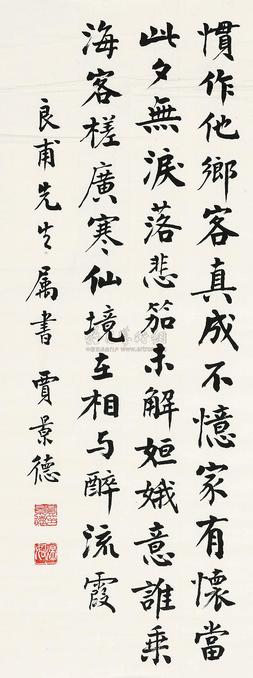 慣作他鄉客真成不憶家有懷當
此夕無淚落悲笳未解姮娥意誰乗
海客槎廣寒仙境在相与醉流霞
良甫先生属書 賈景德